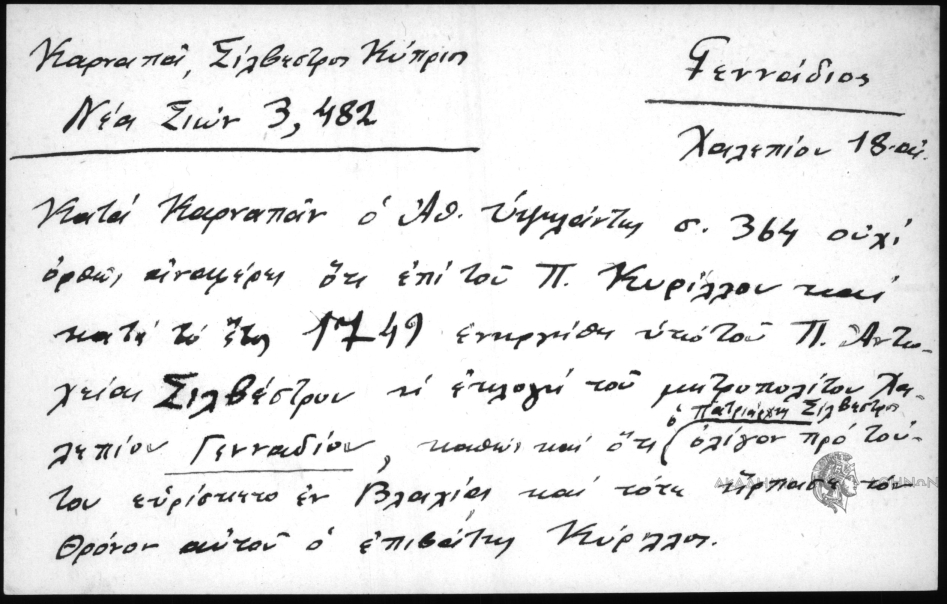 Καρναπᾶ, Σίλβεστρος Κύπριος
Νέα Σιών 3, 482
Γεννάδιος
Χαλεπίου 18. αἰ.
Κατά Καρναπᾶν ὁ Ἀθ. Ὑψηλάντης σ. 364 οὐχί
ὀρθῶς ἀναφέρει ὅτι ἐπί τοῦ Π. Κυρίλλου καί
κατά τό ἔτος 1749 ἐνηργήθη ὑπό τοῦ Π. Ἀντιο-
χείας Σιλβέστρου ἡ ἐκλογή τοῦ μητροπολίτου Χα-
ὁ Πατριάρχης Σίλβεστρος
λεπίου Γενναδίου, καθώς καί ὅτι ὀλίγον πρό τού-
του εὑρίσκετο ἐν Βλαχίᾳ καί τότε ἥρπασε τόν
Θρόνον αὐτοῦ ὁ ἐπιβάτης Κύριλλος.